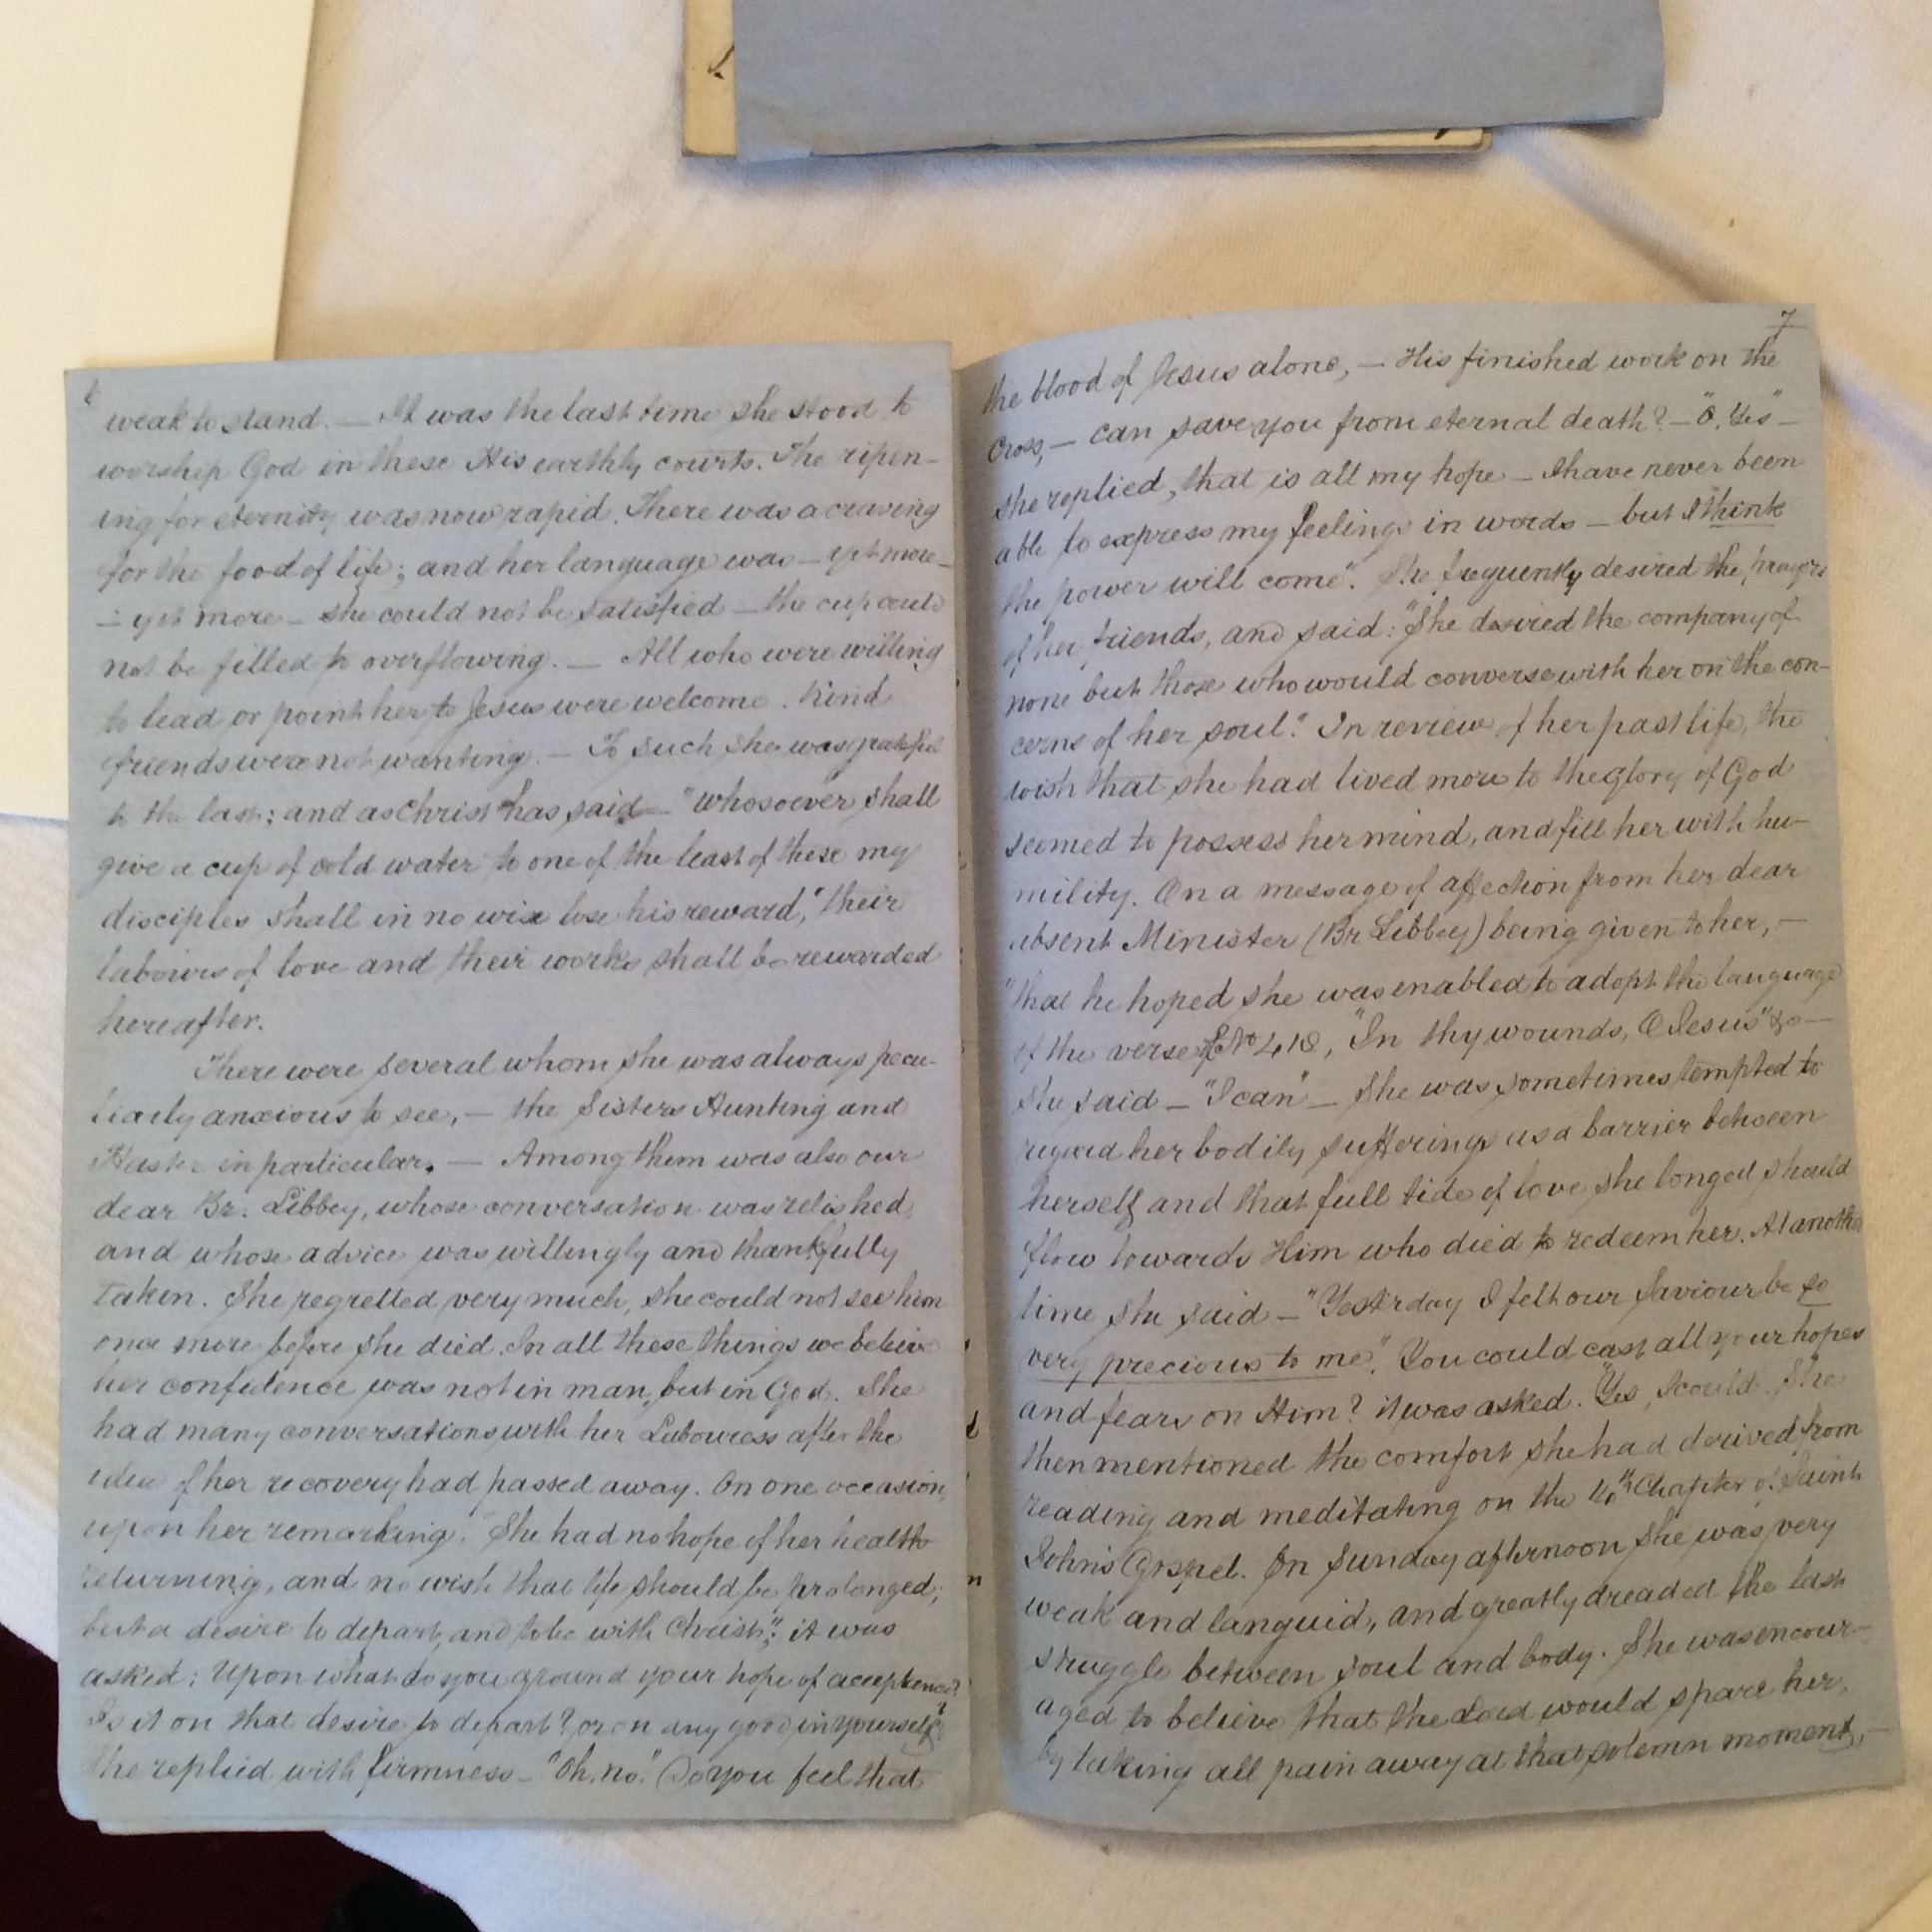 6
weak to stand. — It was the last time she stood to
worship God in these His earthly courts. The ripen-
ing for eternity was now rapid. There was a craving
for the food of life; and her language was — yet more —
— yet more — she could not be satisfied — the cup could
not be filled to overflowing. — All who were willing
to lead or point her to Jesus were welcome. Kind
friends were not wanting. — To such she was grateful
to the last; and as Christ has said — "whosoever shall
give a cup of cold water to one of the least of these my
disciples shall in no wise lose his reward," their
labours of love and their works shall be rewarded
hereafter.
There were several whom she was always pecu-
liarly anxious to see, — the Sisters Hunting and
in particular. — Among them was also our
dear Br. Libbey, whose conversation was relished,
and whose advice was willingly and thankfully
taken. She regretted very much, she could not see him
once more before she died. In all these things we believe
her confidence was not in man, but in God. She
had many conversations with her Labouress after the
idea of her recovery had passed away. On one occasion,
upon her remarking, "She had no hope of her health
returning, and no wish that life should be prolonged;
but a desire to depart, and to be with Christ"; it was
asked: Upon what do you ground your hope of acceptance?
Is it on that desire to depart? or on any good in yourself?
She replied with firmness — "Oh, no." Do you feel that
7
the blood of Jesus alone, — His finished work on the
Cross, — can save you from eternal death? — "O, Yes" —
she replied, that is all my hope — I have never been
able to express my feelings in words — but I think
the power will come". She frequently desired the prayers
of her friends, and said: "She desired the company of
none but those who would converse with her on the con-
cerns of her soul." In review of her past life, the
wish that she had lived more to the glory of God
seemed to possess her mind, and fill her with hu-
mility. On a message of affection from her dear
absent Minister (Br Libbey) being given to her, —
"that he hoped she was enabled to adopt the language
of the verse of No 418, "In thy wounds, O Jesus" &c —
she said — "I can" — She was sometimes tempted to
regard her bodily sufferings as a barrier between
herself and that full tide of love she longed should
flow towards Him who died to redeem her. At another
time she said — "Yesterday I felt our Saviour be so
very precious to me". You could cast all your hopes
and fears on Him? it was asked. "Yes, I could. She
then mentioned the comfort she had derived from
reading and meditating on the 16th Chapter of Saint
John's Gospel. On Sunday afternoon she was very
weak and languid, and greatly dreaded the last
struggle between soul and body. She was encour-
aged to believe that the Lord would spare her,
by taking all pain away at that solemn moment, —